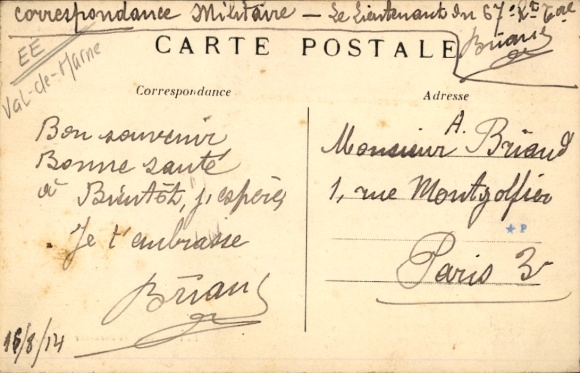 Correspondance Militaire - Le Lieutenant du 67e Rt Tal
Briand
EE
Val-de-Marne
CARTE POSTALE
Correspondance
Adresse
Bon souvenir
Bonne santé
à Bientôt, j'espère,
Je t'embrasse
Briand
16/8/14
A.
Monsieur Briand
1, rue Montgolfier
* P
Paris 3e